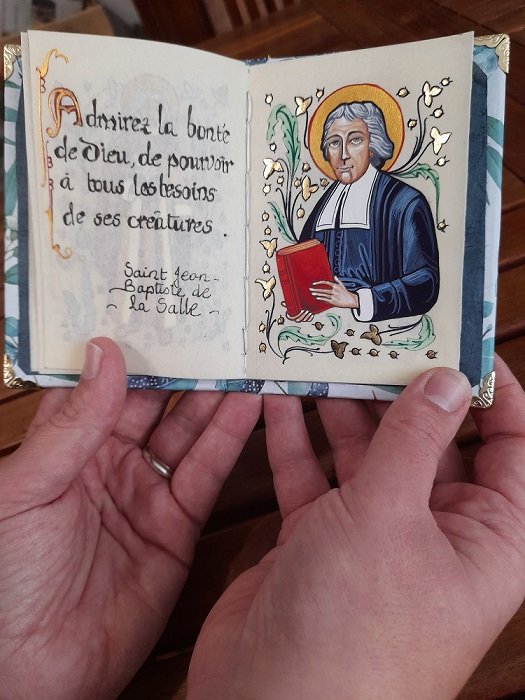 Admirez la bonté
de Dieu, de pourvoir
à tous les besoins
de ses créatures.
Saint Jean-
Baptiste de
~ la Salle ~